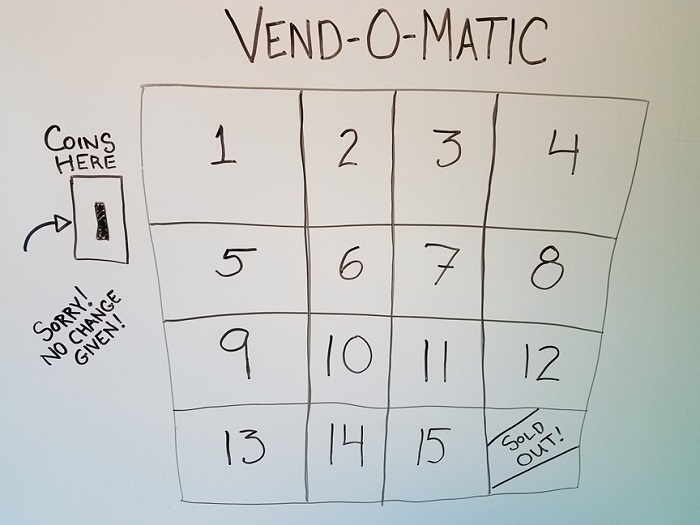 VEND-O-MATIC
COINS
HERE
SORRY!
NO CHANGE
GIVEN!
1 2 3 4
5 6 7 8
9 10 11 12
13 14 15 SOLD
OUT!